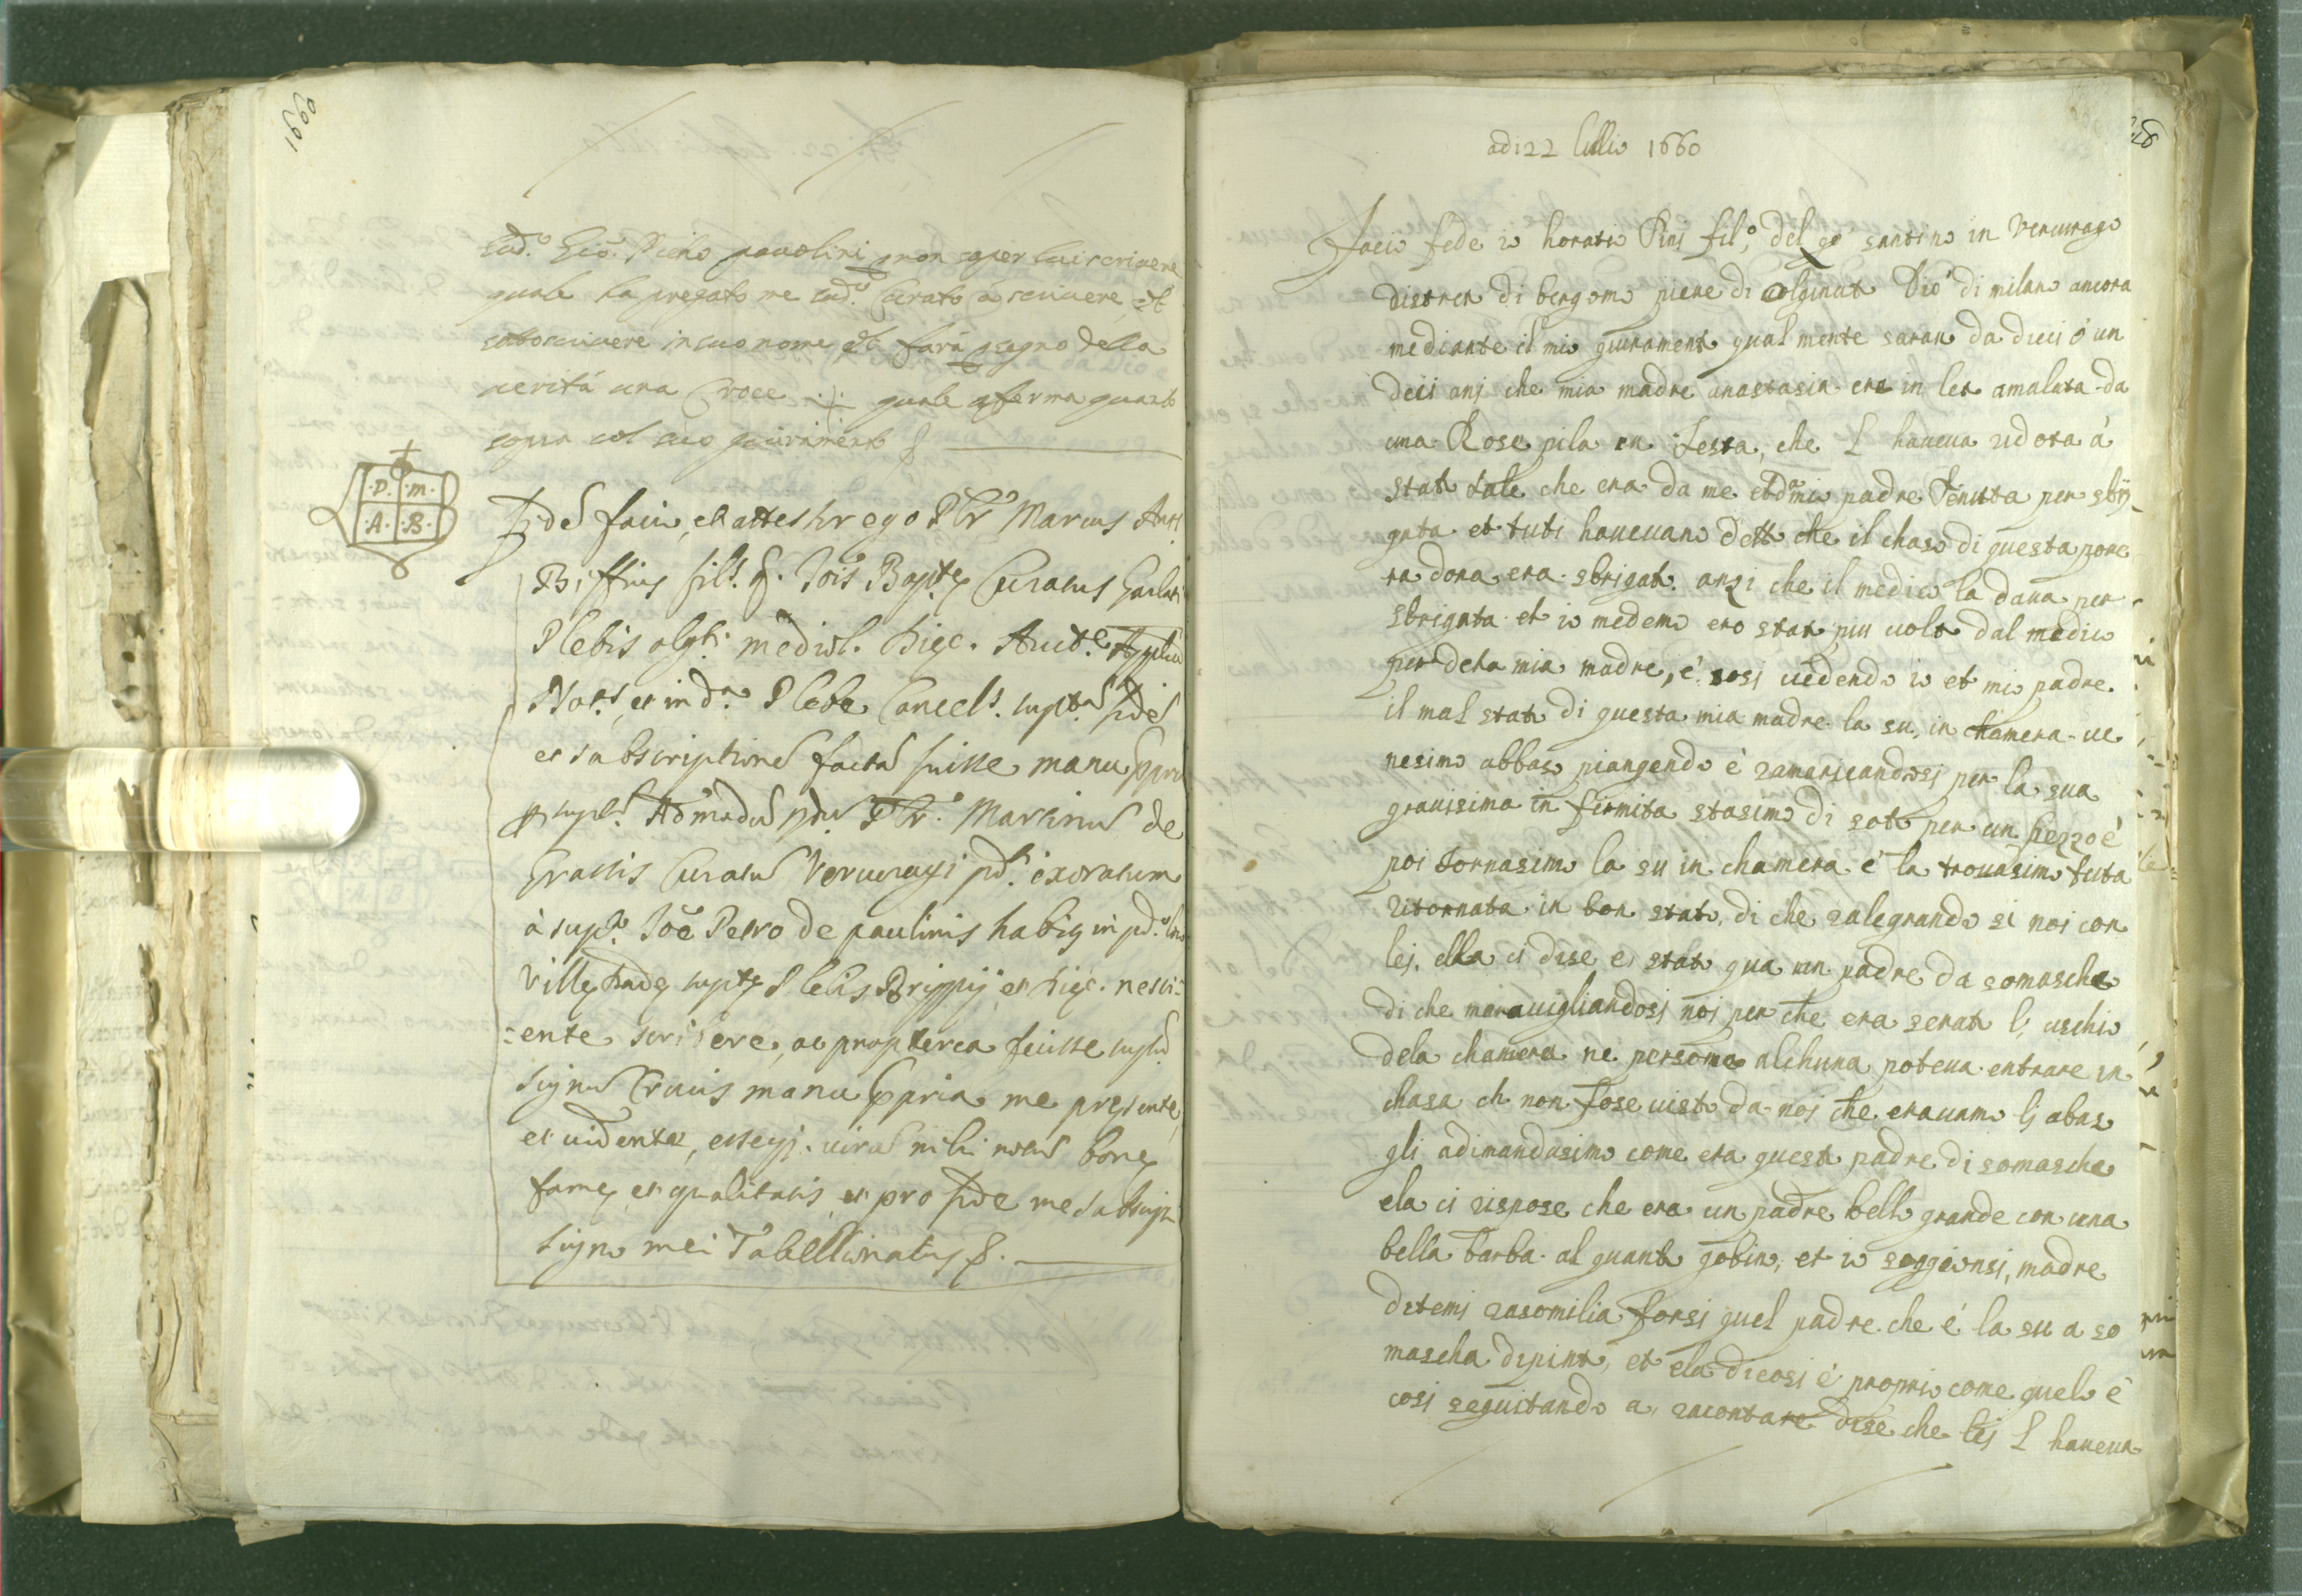 1660
sud.º Gio: Pietro pauolini non saper lui scriuere
quale ha pregato me sud.º Curato à scriuere, et
sotoscriuere in suo nome, et farà segno della
verità una Croce .+. quale afferma quanto
sopra col suo giuramento
.D. .M.
.A. .B.
fidẽ facio, et attestor ego Pbr Marcus Ant.
Biffius fil.s q. Jois Bapt.ę Curatus Garlati
Plebis olg.ti mediol. dięc. Auct.e Applica
Not.s, et in d.a Plebe Cancell.s supt.ã fidẽ
et subscriptionẽ factã fuisse manu ppria
Admodũ Pbr. Martinũ de
Grassis Curatũ Vercuragi pd.ti exoratum
à sup.to Joe Petro de paulinis habię in pd.o
Villę suptę Plebis Brippij et dięc. nesci=
=ente scribere, ac propterea fuisse
signũ Crucis manu ppria me presente,
et uidente, virũ mihi notũ bonę
famę, et qualitatis, et pro fide me subscripsi
signo mei Tabellionatus
adi 22 lullio 1660
Facio fede io horatio fil.º del qº santino in Vercurago
distreto di bergomo pieve di olginato Dio. di milano ancora
mediante il mio giuramento qual mente saran da dieci ó un
deci anj che mia madre anastasia era in leto amalata da
una Rose pila in Testa, che l haueua ridota á
stato tale che era da me et da mio padre Tenuta per sbri
gata et tuti haueuano detto che il chaso di questa poue
ra dona era sbrigato. anzi che il medico la daua per
sbrigata et io medemo ero stato piu uolte dal medico
per deta mia madre, é cosi uedendo io et mio padre
il mal stato di questa mia madre la su, in chamera ue
nesimo abbaso piangendo è ramaricandosi per la sua
grauisima in firmita stasimo di soto per un pezzo é
poi tornasimo la su in chamera é la trouasimo tuta
ritornata in bon stato, di che ralegrando si noi con
lej, ella ci dise e stato qua un padre da somascha
di che marauigliandosj noj per che era serato l; uschio
dela chamera ne persona alchuna poteua entrare in
chasa ch non fose uisto da noj che erauamo lj abaso
gli adimandasimo come era questo padre di somascha
ela ci rispose che era un padre bello grande con una
bella barba al quanto gobino, et io soggionsi, madre
ditemi rasomilia forsi quel padre che é la su a so
mascha depinto, et ela dicosi é proprio come quelo é
cosi seguitando a, racontare dise che lej l haueua